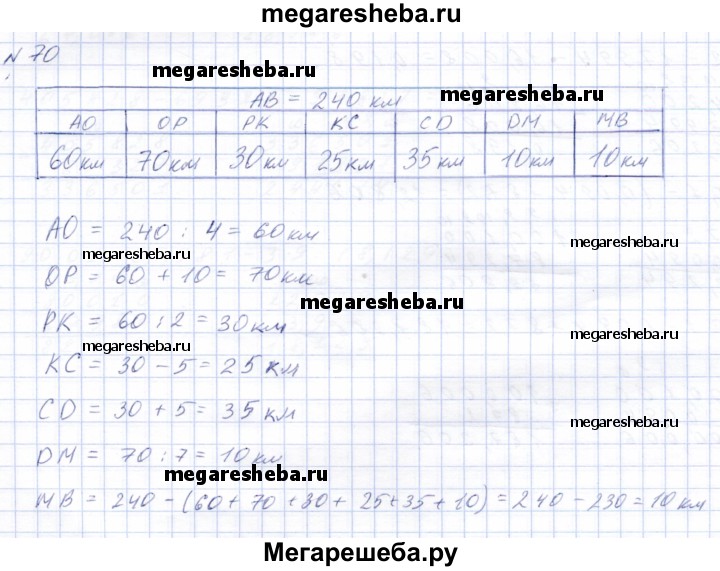 megaresheba.ru
№ 70
megaresheba.ru
AB = 240 км megaresheba.ru
AO OP PK KC CD DM MB
60км 70км 30км 25км 35км 10км 10км
AO = 240 : 4 = 60км
megaresheba.ru megaresheba.ru
OP = 60 + 10 = 70км
megaresheba.ru
PK = 60 : 2 = 30км
megaresheba.ru megaresheba.ru
KC = 30 - 5 = 25 км
CD = 30 + 5 = 35 км
megaresheba.ru
DM = 70 : 7 = 10км
megaresheba.ru
MB = 240 - (60 + 70 + 30 + 25 + 35 + 10) = 240 - 230 = 10 км
Мегарешеба.ру